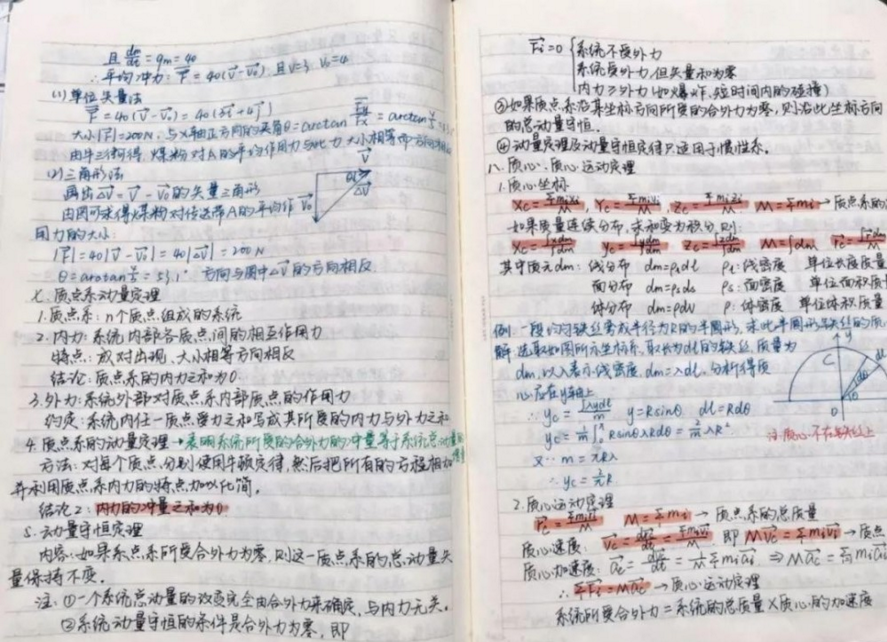 且 dm/dt = qm = 40
∴平均冲力: F = 40(V - V₀) 且 V=3, V₀=4
(1) 单位矢量法
F = 40(V - V₀) = 40(3i + 4j)
大小|F| = 200N, 与x轴正方向的夹角θ = arctan = arctan
由牛三律可得, 煤粉对A的平均作用力与此力大小相等而方向相反
(2) 三角形法
画出ΔV = V - V₀的矢量三角形
由图可求得煤粉对传送带A的平均作
用力的大小:
|F| = 40|V - V₀| = 40|ΔV| = 200N
θ = arctan = 53.1° 方向与图中ΔV的方向相反
V
V₀
ΔV
七. 质点系动量定理
1. 质点系: n个质点组成的系统
2. 内力: 系统内部各质点间的相互作用力
特点: 成对出现, 大小相等方向相反
结论: 质点系的内力之和为0.
3. 外力: 系统外部对质点系内部质点的作用力
约定: 系统内任一质点受力之和写成其所受的内力与外力之和
4. 质点系的动量定理 → 表明系统所受的合外力的冲量等于系统总动量的
方法: 对每个质点, 分别使用牛顿定律, 然后把所有的方程相加
并利用质点系内力的特点加以化简.
结论2: 内力的冲量之和为0
5. 动量守恒定理
内容: 如果系点系所受合外力为零, 则这一质点系的总动量矢
量保持不变.
注: ①一个系统总动量的改变完全由合外力来确定, 与内力无关.
②系统动量守恒的条件是合外力为零, 即
Fi = 0 { 系统不受外力
系统受外力, 但矢量和为零
内力>外力 (如爆炸, 短时间内的碰撞)
③如果质点系沿某坐标方向所受的合外力为零, 则沿此坐标方向
的总动量守恒.
④动量定理及动量守恒定律只适用于惯性系.
八. 质心. 质心运动定理
1. 质心坐标
Xc = Σmixi/M Yc = Σmiyi/M Zc = Σmizi/M M = Σmi → 质点系的
如果质量连续分布, 求和变为积分, 则:
Xc = ∫xdm/M yc = ∫ydm/M Zc = ∫zdm/M M = ∫dm rc =
其中质元dm: 线分布 dm = ρl dl ρl: 线密度 单位长度质量
面分布 dm = ρs ds ρs: 面密度 单位面积质
体分布 dm = ρdv ρ: 体密度 单位体积质量
例. 一段均匀铁丝弯成半径为R的半圆形, 求此半圆形铁丝的质
解. 选取如图所示坐标系, 取长为dl的铁丝, 质量为
dm, 以λ表示线密度, dm = λdl. 分析得质
心应在y轴上
∴ yc = ∫λydl/m y = Rsinθ dl = Rdθ
yc = 1/m ∫ RsinθλRdθ = 2/m λR²
又∵ m = πRλ
∴ yc = 2/π R
y
C
O
注: 质心不在铁丝上
2. 质心运动定理
rc = Σmiri/M M = Σmi → 质点系的总质量
质心速度: Vc = drc/dt = Σmivi/M 即 MVc = Σmivi → 质点
质心加速度: ac = dvc/dt = 1/M Σmiai ⇒ Mac = Σmiai
∴ ΣFi = Mac → 质心运动定理
系统所受合外力 = 系统的总质量 × 质心的加速度